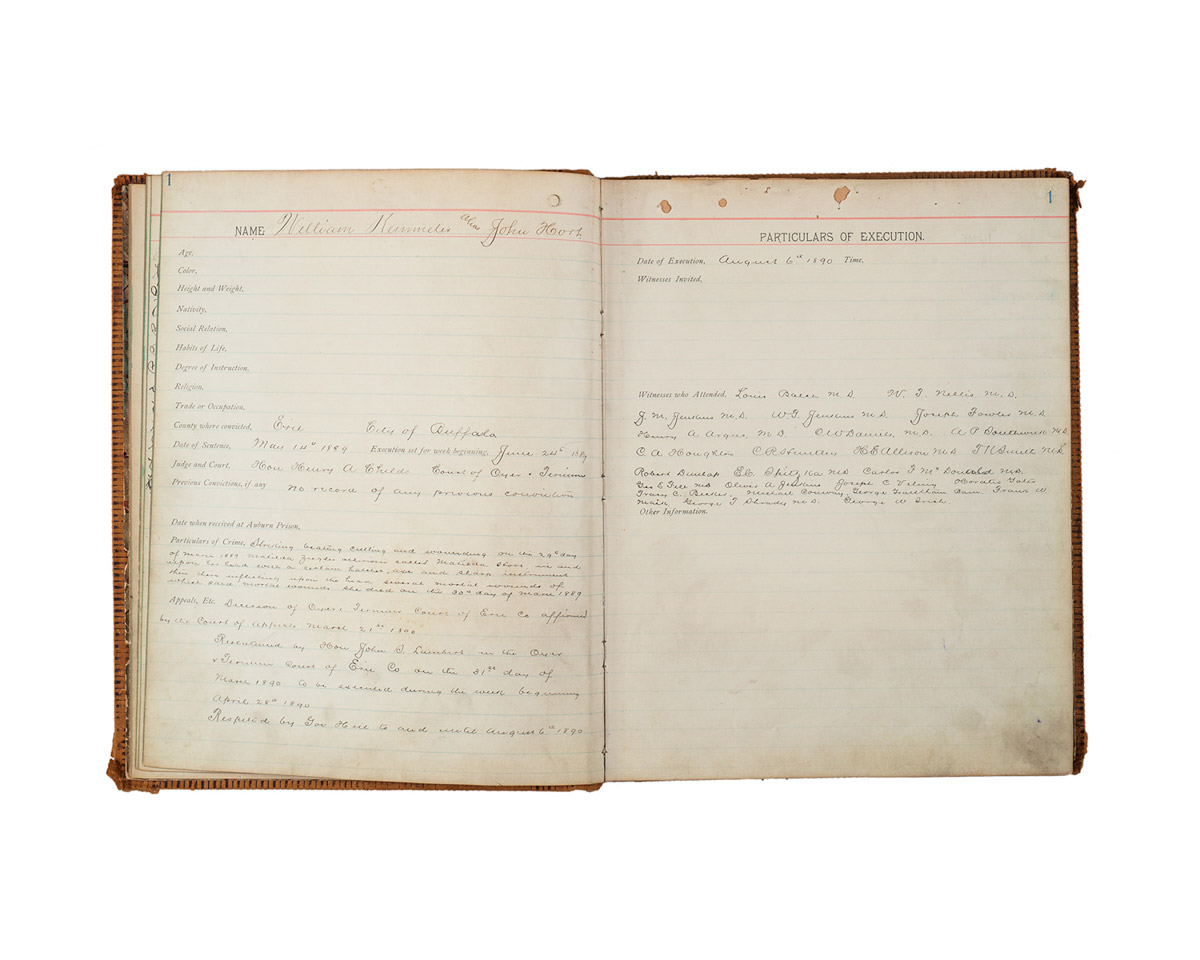 1
NAME William Kemmeler alias John Hort
Age,
Color,
Height and Weight,
Nativity,
Social Relation,
Habits of Life,
Degree of Instruction,
Religion,
Trade or Occupation,
County where convicted, Erie City of Buffalo
Date of Sentence, May 14th 1889 Execution set for week beginning, June 24th 1889
Judge and Court, Hon Henry A Childs Court of Oyer & Terminer
Previous Convictions, if any no record of any previous conviction
Date when received at Auburn Prison,
Particulars of Crime, Striking beating cutting and wounding on the 29th day
of March 1889 Matilda Zeigler otherwise called Matilda Hort, in and
upon her head with a certain hatchet, axe and sharp instrument
then there inflicting upon the head several mortal wounds of
which said mortal wounds she died on the 30th day of March 1889
Appeals, Etc. Decision of Oyer & Terminer Court of Erie Co affirmed
by the Court of Appeals March 21st 1890
Resentenced by Hon John S. Lambert in the Oyer
& Terminer Court of Erie Co on the 31st day of
March 1890 to be executed during the week beginning
April 28th 1890
Respited by Gov Hill to and until August 6th 1890
1
PARTICULARS OF EXECUTION.
Date of Execution, August 6th 1890 Time,
Witnesses Invited,
Witnesses who Attended, Louis Balch M D W. T. Nellis M. D.
J. M. Jenkins M. D. W T. Jenkins M D Joseph Fowler M D
Henry A Argus, M D C W Daniels, M. D. A P Southwick M D
C A Houghton C R Huntley H E Allison M D T K Smith M. D.
Robert Dunlap E. C. Spitzka M D Carlos F Mc Donald M D.
Geo E Fell M D Oliver A Jenkins Joseph C Veling Horatio Yates
Tracy C. Becker. Michael Conway George Grantham Bain, Frank W
Mack George F Shrady M D. George W Irish
Other Information.